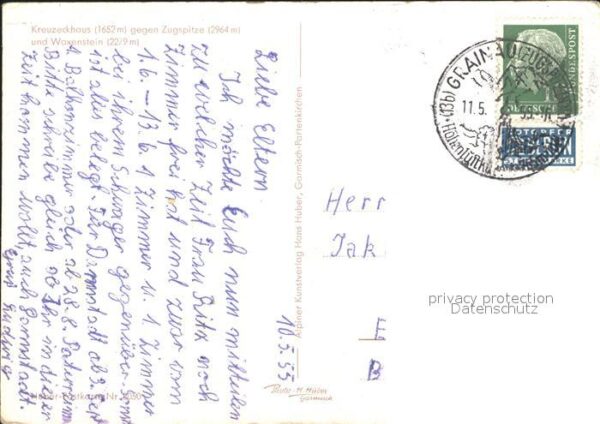 Kreuzeckhaus (1652 m) gegen Zugspitze (2964 m)
und Waxenstein (22/9 m)
10.5.55
Liebe Eltern
Ich möchte Euch nun mitteilen
zu welcher Zeit Frau Ritz noch
Zimmer frei hat und zwar vom
1.6. – 13.6 1 Zimmer u. 1 Zimmer
bei ihrem Schwager gegenüber sonst
ist alles belegt. Für Darmstadt ab 3. Sept
1. Balkonzimmer oder ab 28.8.
Bitte schreibt gleich ob Ihr in dieser
Zeit kommen wollt, auch Darmstadt.
Gruß Ludwig
Huber-Postkarte Nr. 5090
Alpiner Kunstverlag Hans Huber, Garmisch-Partenkirchen
Photo H. Huber
Garmisch
(13b) GRAINAU
11.5. 55
DEUTSCHE BUNDESPOST
NOTOPFER
BERLIN
STEUERMARKE
Herr
Jak
F
B
privacy protection
Datenschutz